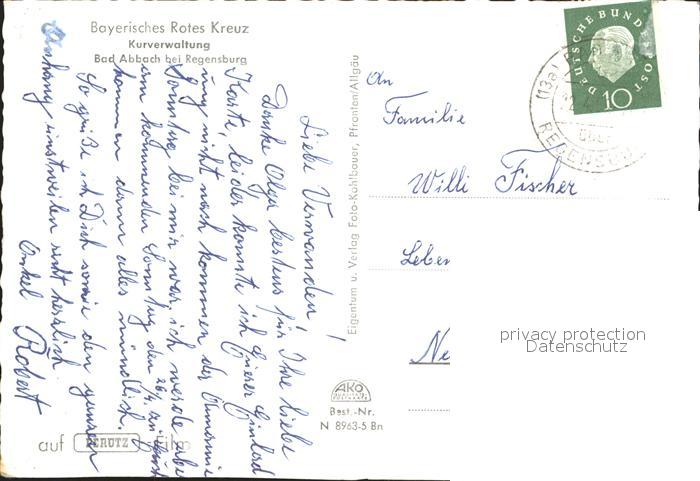 Bayerisches Rotes Kreuz
Kurverwaltung
Bad Abbach bei Regensburg
Liebe Verwanden!
Danke Olga bestens für Ihre liebe
Karte, leider konnte ich Euerer Einlad
ung nicht nach kommen da
Sonntag bei mir war, ich werde aber
am kommenden Sonntag den 26/4. zu Euch
kommen dann alles mündlich.
So grüße ich Dich sowie den ganzen
Anhang einstweilen recht herzlich
Onkel Robert
auf PERUTZ Film
Eigentum u. Verlag Foto-Kuhlbauer, Pfronten/Allgäu
AKO
Best.-Nr.
N 8963-5 Bn
DEUTSCHE BUNDESPOST
10
(13a)
REGENSBURG
An
Familie
Willi Fischer
Leber
Ne
privacy protection
Datenschutz